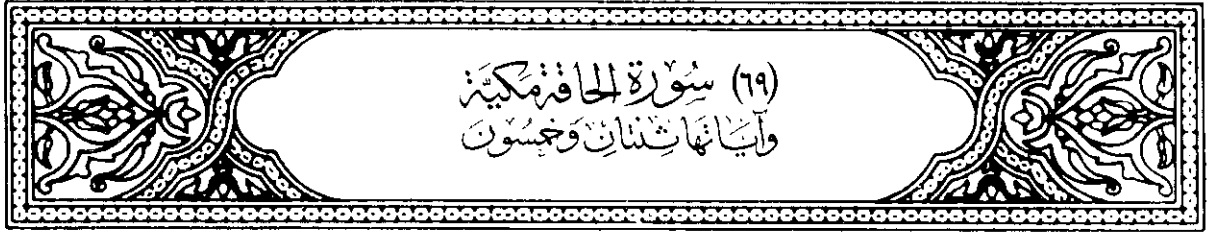 (٦٩) سُورَة الحَاقة مَكيَّة
وآيَاتهَا ثِنتَانِ وَخمسُونَ